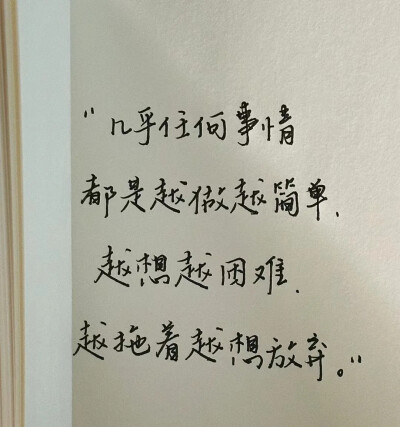 "几乎任何事情
都是越做越简单、
越想越困难.
越拖着越想放弃。"